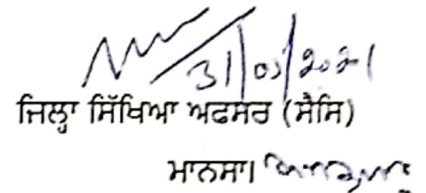 31/05/2021
ਜਿਲ੍ਹਾ ਸਿੱਖਿਆ ਅਫਸਰ (ਸੈਸਿ)
ਮਾਨਸਾ।